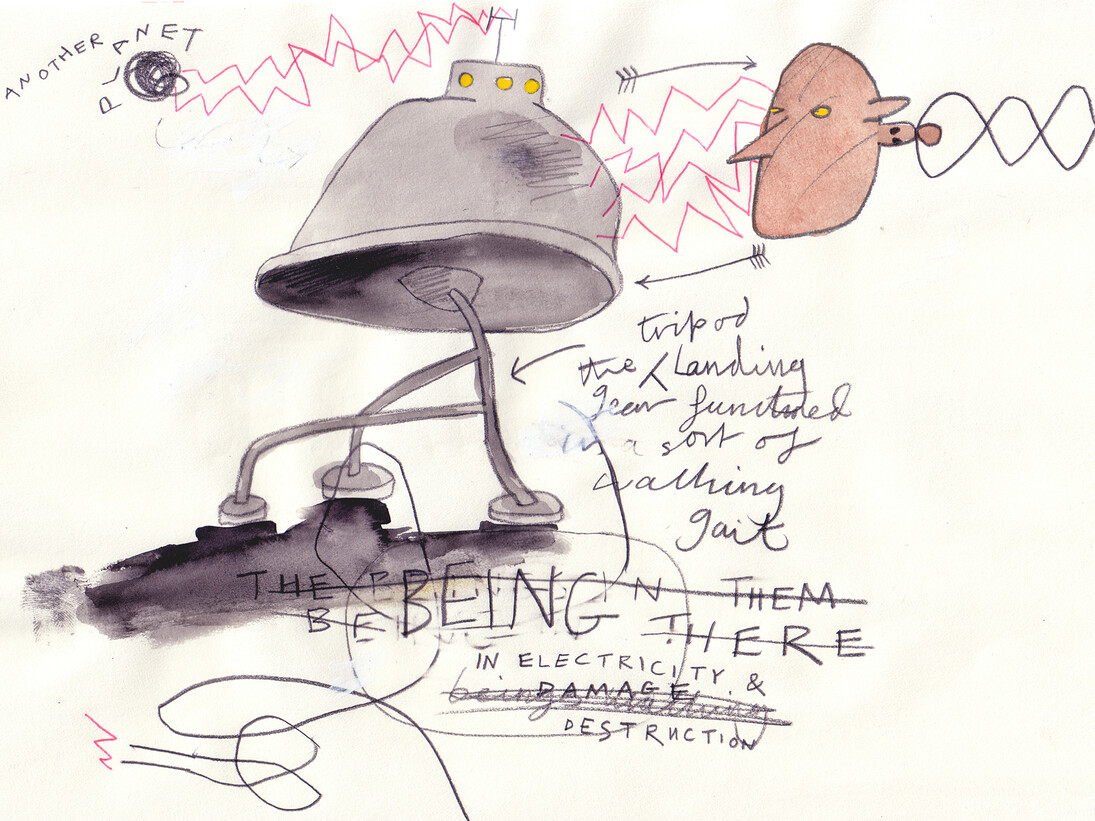 ANOTHER
PLANET
tripod
the Landing
gear functioned
in a sort of
walking
gait
THE BEING IN THEM
BE THERE
IN ELECTRICITY
DAMAGE &
DESTRUCTION